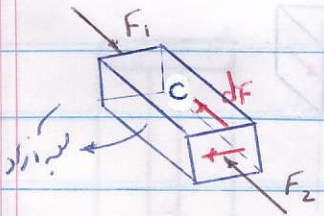 F₁
C
dF
لبه آزاد
F₂